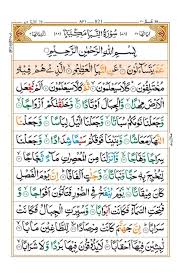 سُوْرَةُ النَّبَاِ مَكِّيَّةٌ
بِسْمِ اللّٰهِ الرَّحْمٰنِ الرَّحِيْمِ
عَمَّ يَتَسَآءَلُوْنَ عَنِ النَّبَاِ الْعَظِيْمِ الَّذِيْ هُمْ فِيْهِ
مُخْتَلِفُوْنَ كَلَّا سَيَعْلَمُوْنَ ثُمَّ كَلَّا سَيَعْلَمُوْنَ اَلَمْ نَجْعَلِ
النَّهَارَ مَعَاشًا وَّبَنَيْنَا فَوْقَكُمْ سَبْعًا شِدَادًا وَّجَعَلْنَا
سِرَاجًا وَّهَّاجًا وَّاَنْزَلْنَا مِنَ الْمُعْصِرٰتِ مَآءً ثَجَّاجًا لِّنُخْرِجَ بِهٖ
حَبًّا وَّنَبَاتًا وَّجَنّٰتٍ اَلْفَافًا اِنَّ يَوْمَ الْفَصْلِ
كَانَ مِيْقَاتًا يَّوْمَ يُنْفَخُ فِي الصُّوْرِ فَتَاْتُوْنَ اَفْوَاجًا وَّ
فُتِحَتِ السَّمَآءُ فَكَانَتْ اَبْوَابًا وَّسُيِّرَتِ الْجِبَالُ فَكَانَتْ
سَرَابًا اِنَّ جَهَنَّمَ كَانَتْ مِرْصَادًا لِّلطَّاغِيْنَ مَاٰبًا
لّٰبِثِيْنَ فِيْهَآ اَحْقَابًا لَا يَذُوْقُوْنَ فِيْهَا بَرْدًا وَّلَا شَرَابًا